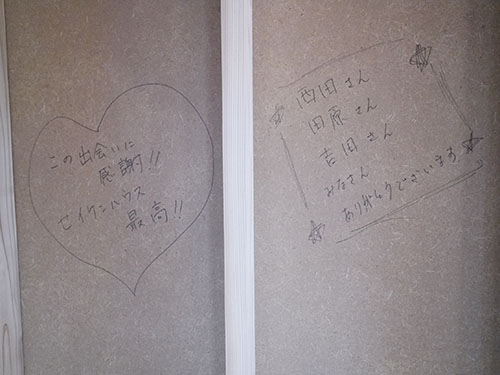 この出会いに
感謝!!
セイケンハウス
最高!!
西田さん
田原さん
吉田さん
みなさん
ありがとうございます